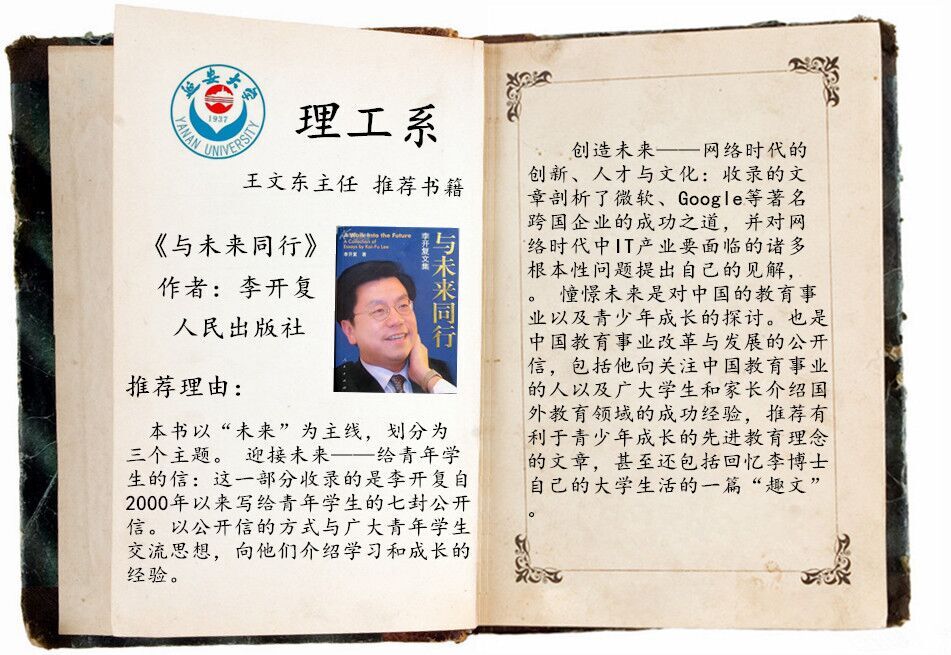 延安大学
1937
YANAN UNIVERSITY
理工系
王文东主任 推荐书籍
《与未来同行》
作者：李开复
人民出版社
A Walk Into the Future
A Collection of
Essays by Kai-Fu Lee
李开复 著
李开复文集
与未来同行
推荐理由：
本书以“未来”为主线，划分为
三个主题。 迎接未来——给青年学
生的信：这一部分收录的是李开复自
2000年以来写给青年学生的七封公开
信。以公开信的方式与广大青年学生
交流思想，向他们介绍学习和成长的
经验。
创造未来——网络时代的
创新、人才与文化：收录的文
章剖析了微软、Google等著名
跨国企业的成功之道，并对网
络时代中IT产业要面临的诸多
根本性问题提出自己的见解，
。 憧憬未来是对中国的教育事
业以及青少年成长的探讨。也是
中国教育事业改革与发展的公开
信，包括他向关注中国教育事业
的人以及广大学生和家长介绍国
外教育领域的成功经验，推荐有
利于青少年成长的先进教育理念
的文章，甚至还包括回忆李博士
自己的大学生活的一篇“趣文”
。